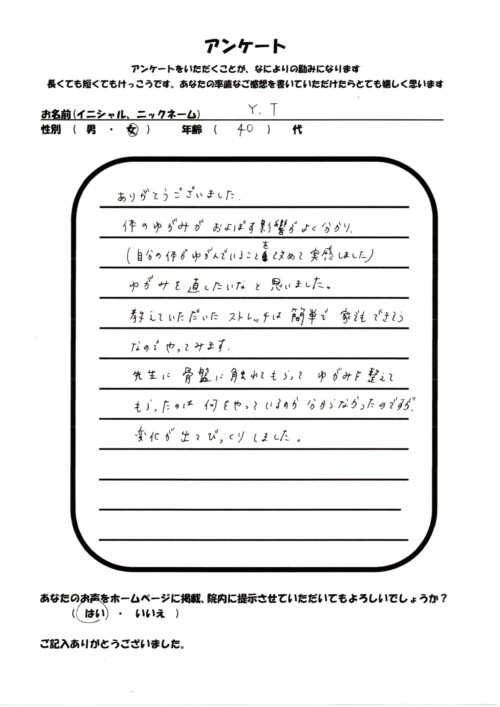 アンケート
アンケートをいただくことが、なによりの励みになります
長くても短くてもけっこうです。あなたの率直なご感想を書いていただけたらとても嬉しく思います
お名前(イニシャル、ニックネーム) Y.T
性別 ( 男 ・ 女 ) 年齢 ( 40 ) 代
ありがとうございました.
体のゆがみが およぼす影響がよく分かり.
(自分の体がゆがんでいることを改めて実感しました)
ゆがみを直したいなと思いました。
教えていただいた ストレッチは 簡単で 家でもできそう
なのでやってみます.
先生に 骨盤に触れてもらって ゆがみを整えて
もらったのは 何をやっているのか 分からなかったのですが.
変化が出てびっくりしました。
あなたのお声をホームページに掲載、院内に提示させていただいてもよろしいでしょうか?
( はい ・ いいえ )
ご記入ありがとうございました。